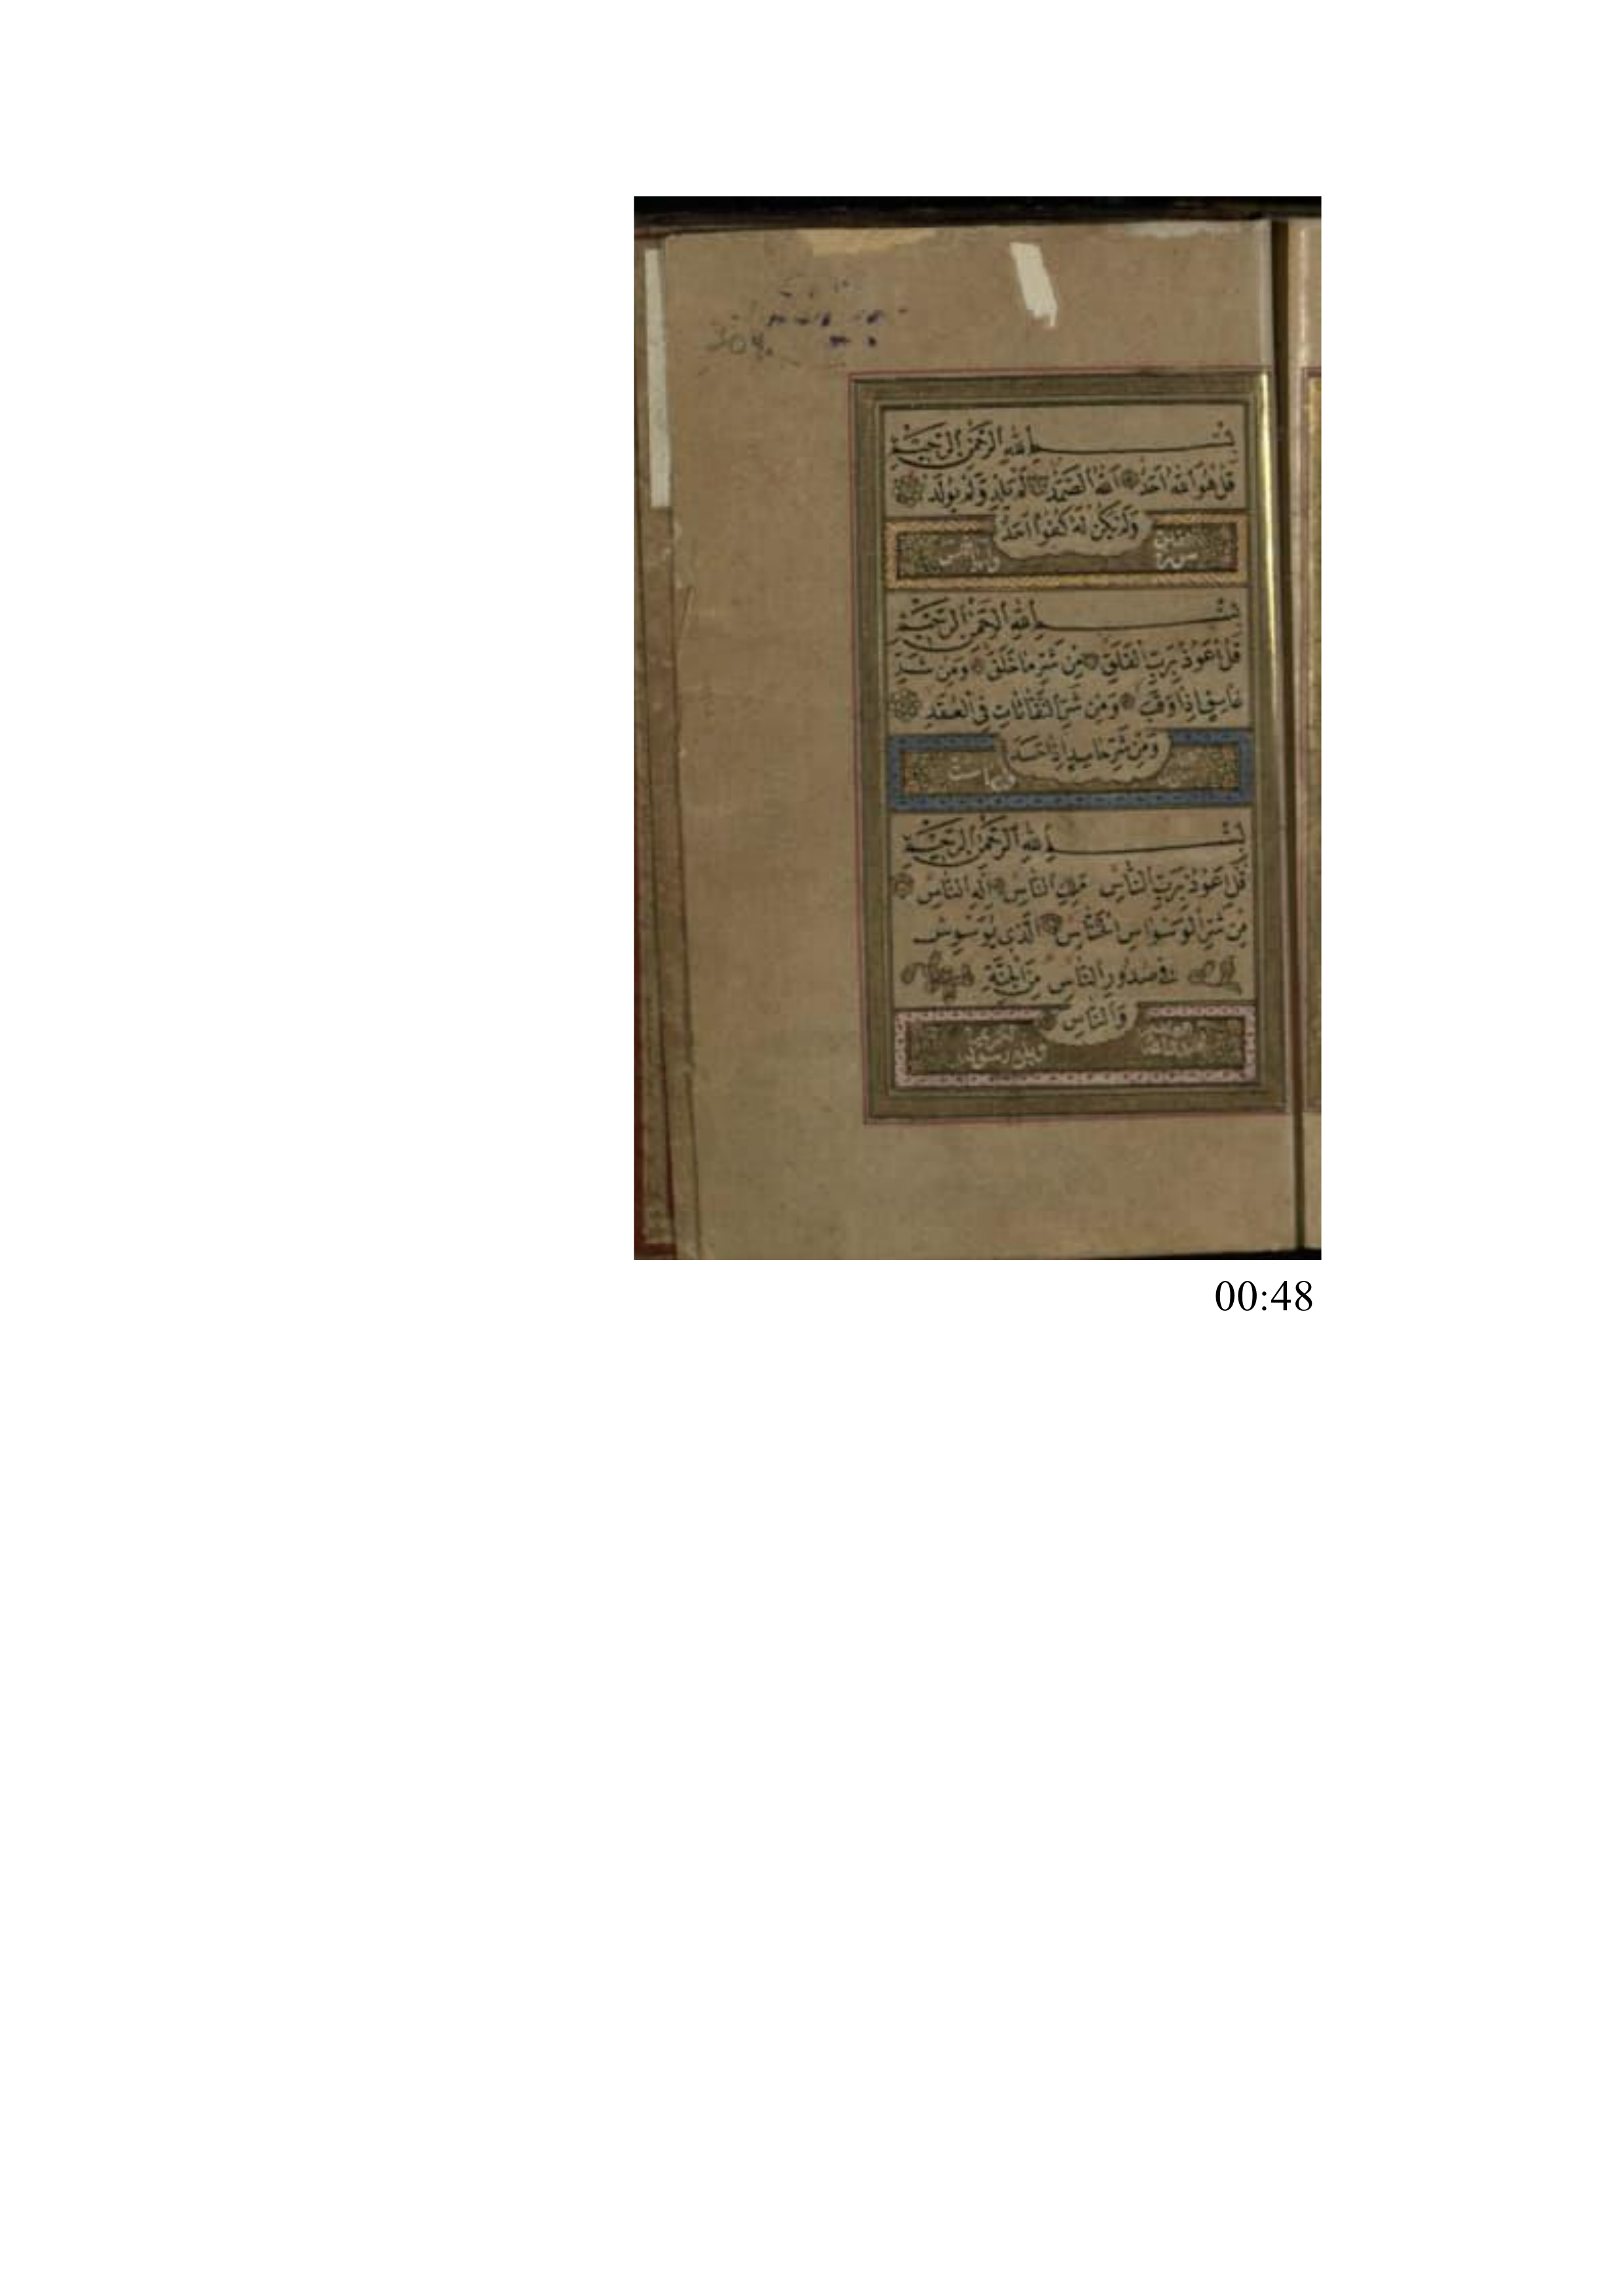 بِسْمِ اللهِ الرَّحْمٰنِ الرَّحِيمِ
قُلْ هُوَ اللهُ اَحَدٌ اَللهُ الصَّمَدُ لَمْ يَلِدْ وَلَمْ يُولَدْ
وَلَمْ يَكُنْ لَهُ كُفُوًا اَحَدٌ
سورة
بِسْمِ اللهِ الرَّحْمٰنِ الرَّحِيمِ
قُلْ اَعُوذُ بِرَبِّ الْفَلَقِ مِنْ شَرِّ مَا خَلَقَ وَمِنْ شَرِّ
غَاسِقٍ اِذَا وَقَبَ وَمِنْ شَرِّ النَّفَّاثَاتِ فِي الْعُقَدِ
وَمِنْ شَرِّ حَاسِدٍ اِذَا حَسَدَ
بِسْمِ اللهِ الرَّحْمٰنِ الرَّحِيمِ
قُلْ اَعُوذُ بِرَبِّ النَّاسِ مَلِكِ النَّاسِ اِلٰهِ النَّاسِ
مِنْ شَرِّ الْوَسْوَاسِ الْخَنَّاسِ الَّذِي يُوَسْوِسُ
فِي صُدُورِ النَّاسِ مِنَ الْجِنَّةِ
وَالنَّاسِ
00:48